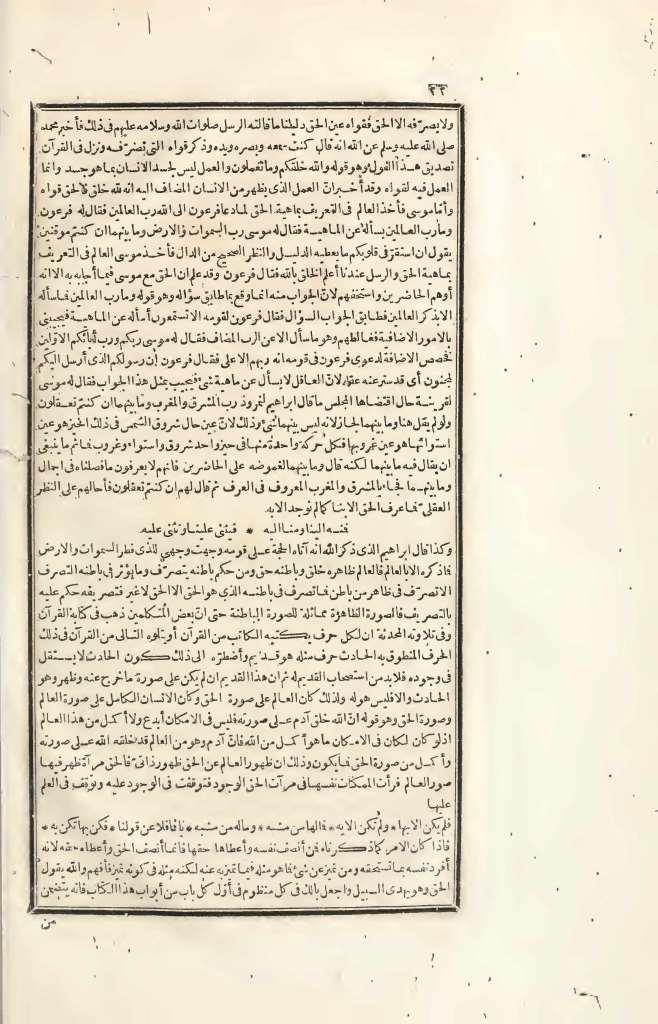 ٢٢
ولا يصرفه الا الحق فقواه عين الحق دليلنا ما قالته الرسل صلوات الله وسلامه عليهم فى ذلك فأخبر محمد
صلى الله عليه وسلم عن الله انه قال كنت سمعه وبصره ويده وذكر قواه التى تصرفه ونزل فى القرآن
تصديق هذا القول وهو قوله والله خلقكم وما تعملون والعمل ليس لجسد الانسان بما هو جسد وانما
العمل فيه لقواه وقد أخبر انّ العمل الذى يظهر من الانسان المضاف اليه انه لله خلق فالحق قواه
وأمّا موسى فأخذ العالم فى التعريف بماهية الحق لما دعا فرعون الى الله رب العالمين فقال له فرعون
وما رب العالمين يسأله عن الماهية فقال له موسى رب السموات والارض وما بينهما ان كنتم موقنين
يقول ان استقرّ فى قلوبكم ما يعطيه الدليل والنظر الصحيح من الدال فأخذ موسى العالم فى التعريف
بماهية الحق والرسل عندنا أعلم الخلق بالله فقال فرعون وقد علم ان الحق مع موسى فيما أجابه به الا انه
أوهم الحاضرين واستخفهم لانّ الجواب منه انما وقع بما طابق سؤاله وهو قوله وما رب العالمين فما سأله
الا بذكر العالمين فطابق الجواب السؤال فقال فرعون لقومه الا تستمعون أسأله عن الماهية فيجيبنى
بالامور الاضافية فغالطهم وهو ما سأل الا عن الرب المضاف فقال له موسى ربكم ورب آبائكم الاوّلين
فخصص الاضافة لدعوى فرعون فى قومه انه ربهم الاعلى فقال فرعون إن رسولكم الذى أرسل اليكم
لمجنون أى قد ستر عنه عقله لانّ العاقل لا يسأل عن ماهية شئ فيجيب بمثل هذا الجواب فقال له موسى
لقرينة حال اقتضاها المجلس ما قال ابراهيم لنمروذ رب المشرق والمغرب وما بينهما ان كنتم تعقلون
ولو لم يقل هنا وما بينهما لجاز لانه ليس بينهما شئ وذلك لانّ عين حال شروق الشمس فى ذلك الحيز هو عين
استوائها هو عين غروبها فكل حركة واحدة منها فى حيز واحد شروق واستواء وغروب فما ثم ما ينبغى
ان يقال فيه ما بينهما لكنه قال وما بينهما لغموضه على الحاضرين فانهم لا يعرفون ما فصلناه فى اجمال
وما بينهما فجاء بالمشرق والمغرب المعروف فى العرف ثم قال لهم ان كنتم تعقلون فأحالهم على النظر
العقلى فما عرف الحق الا بنا كما لم نوجد الا به.
فمنه الينا ومنا اليه * فيثنى علينا ونثنى عليه
وكذا قال ابراهيم الذى ذكر الله انه آتاه الحجة على قومه وجهت وجهى للذى فطر السموات والارض
فما ذكره الا بالعالم فالعالم ظاهره خلق وباطنه حق ومن حكم باطنه يتصرّف وما يؤثر فى باطنه التصرف
الا تصرّف فى ظاهر من باطن فما تصرف فى باطنه الذى هو الحق الا الحق لا غير فتصريفه حكم عليه
بالتصريف فالصورة الظاهرة مماثلة للصورة الباطنة حتى انّ بعض المتكلمين ذهب فى كتابة القرآن
وفى تلاوته المحدثة ان لكل حرف يكتبه الكاتب من القرآن أو يتلوه التالى من القرآن فى ذلك
الحرف المنطوق به الحادث حرف مثله هو قديم وأضطرّه الى ذلك كون الحادث لا يستقل
فى وجوده فلا بد من استصحاب القديم له ثم ان هذا القديم ان لم يكن على صورة ما خرج عنه وظهر وهو
الحادث والا فليس هو له ولذلك كان العالم على صورة الحق وكان الانسان الكامل على صورة العالم
وصورة الحق وهو قوله انّ الله خلق آدم على صورته فليس فى الامكان أبدع ولا أكمل من هذا العالم
اذ لو كان لكان فى الامكان ما هو أكمل من الله فانّ آدم وهو من العالم قد خلقه الله على صورته
وأكمل من صورة الحق فما يكون وذلك ان ظهور العالم عن الحق ظهور ذاتىّ فالحق مرآة ظهر فيها
صور العالم فرأت الممكنات نفسها فى مرآت الحق الوجود فتوقفت فى الوجود عليه وتوقف فى العلم
عليها
فلم يكن الا بها * ولم تكن الا به * فمالها من مشبه * وماله من مشبه * يا غافلا عن قولنا * فكن بها تكن به *
فاذا كان الامر كما ذكرناه فمن أنصف نفسه وأعطاها حقها فانما أنصف الحق وأعطاه حقه لانه
أفرد نفسه بما تستحقه ومن تميز عن شئ فما هو مثله فيما تميز به عنه لكنه مثله فى كونه تميز فافهم والله يقول
الحق وهو يهدى السبيل واجعل بالك فى كل منظوم فى أوّل كل باب من أبواب هذا الكتاب فانه يتضمن
من